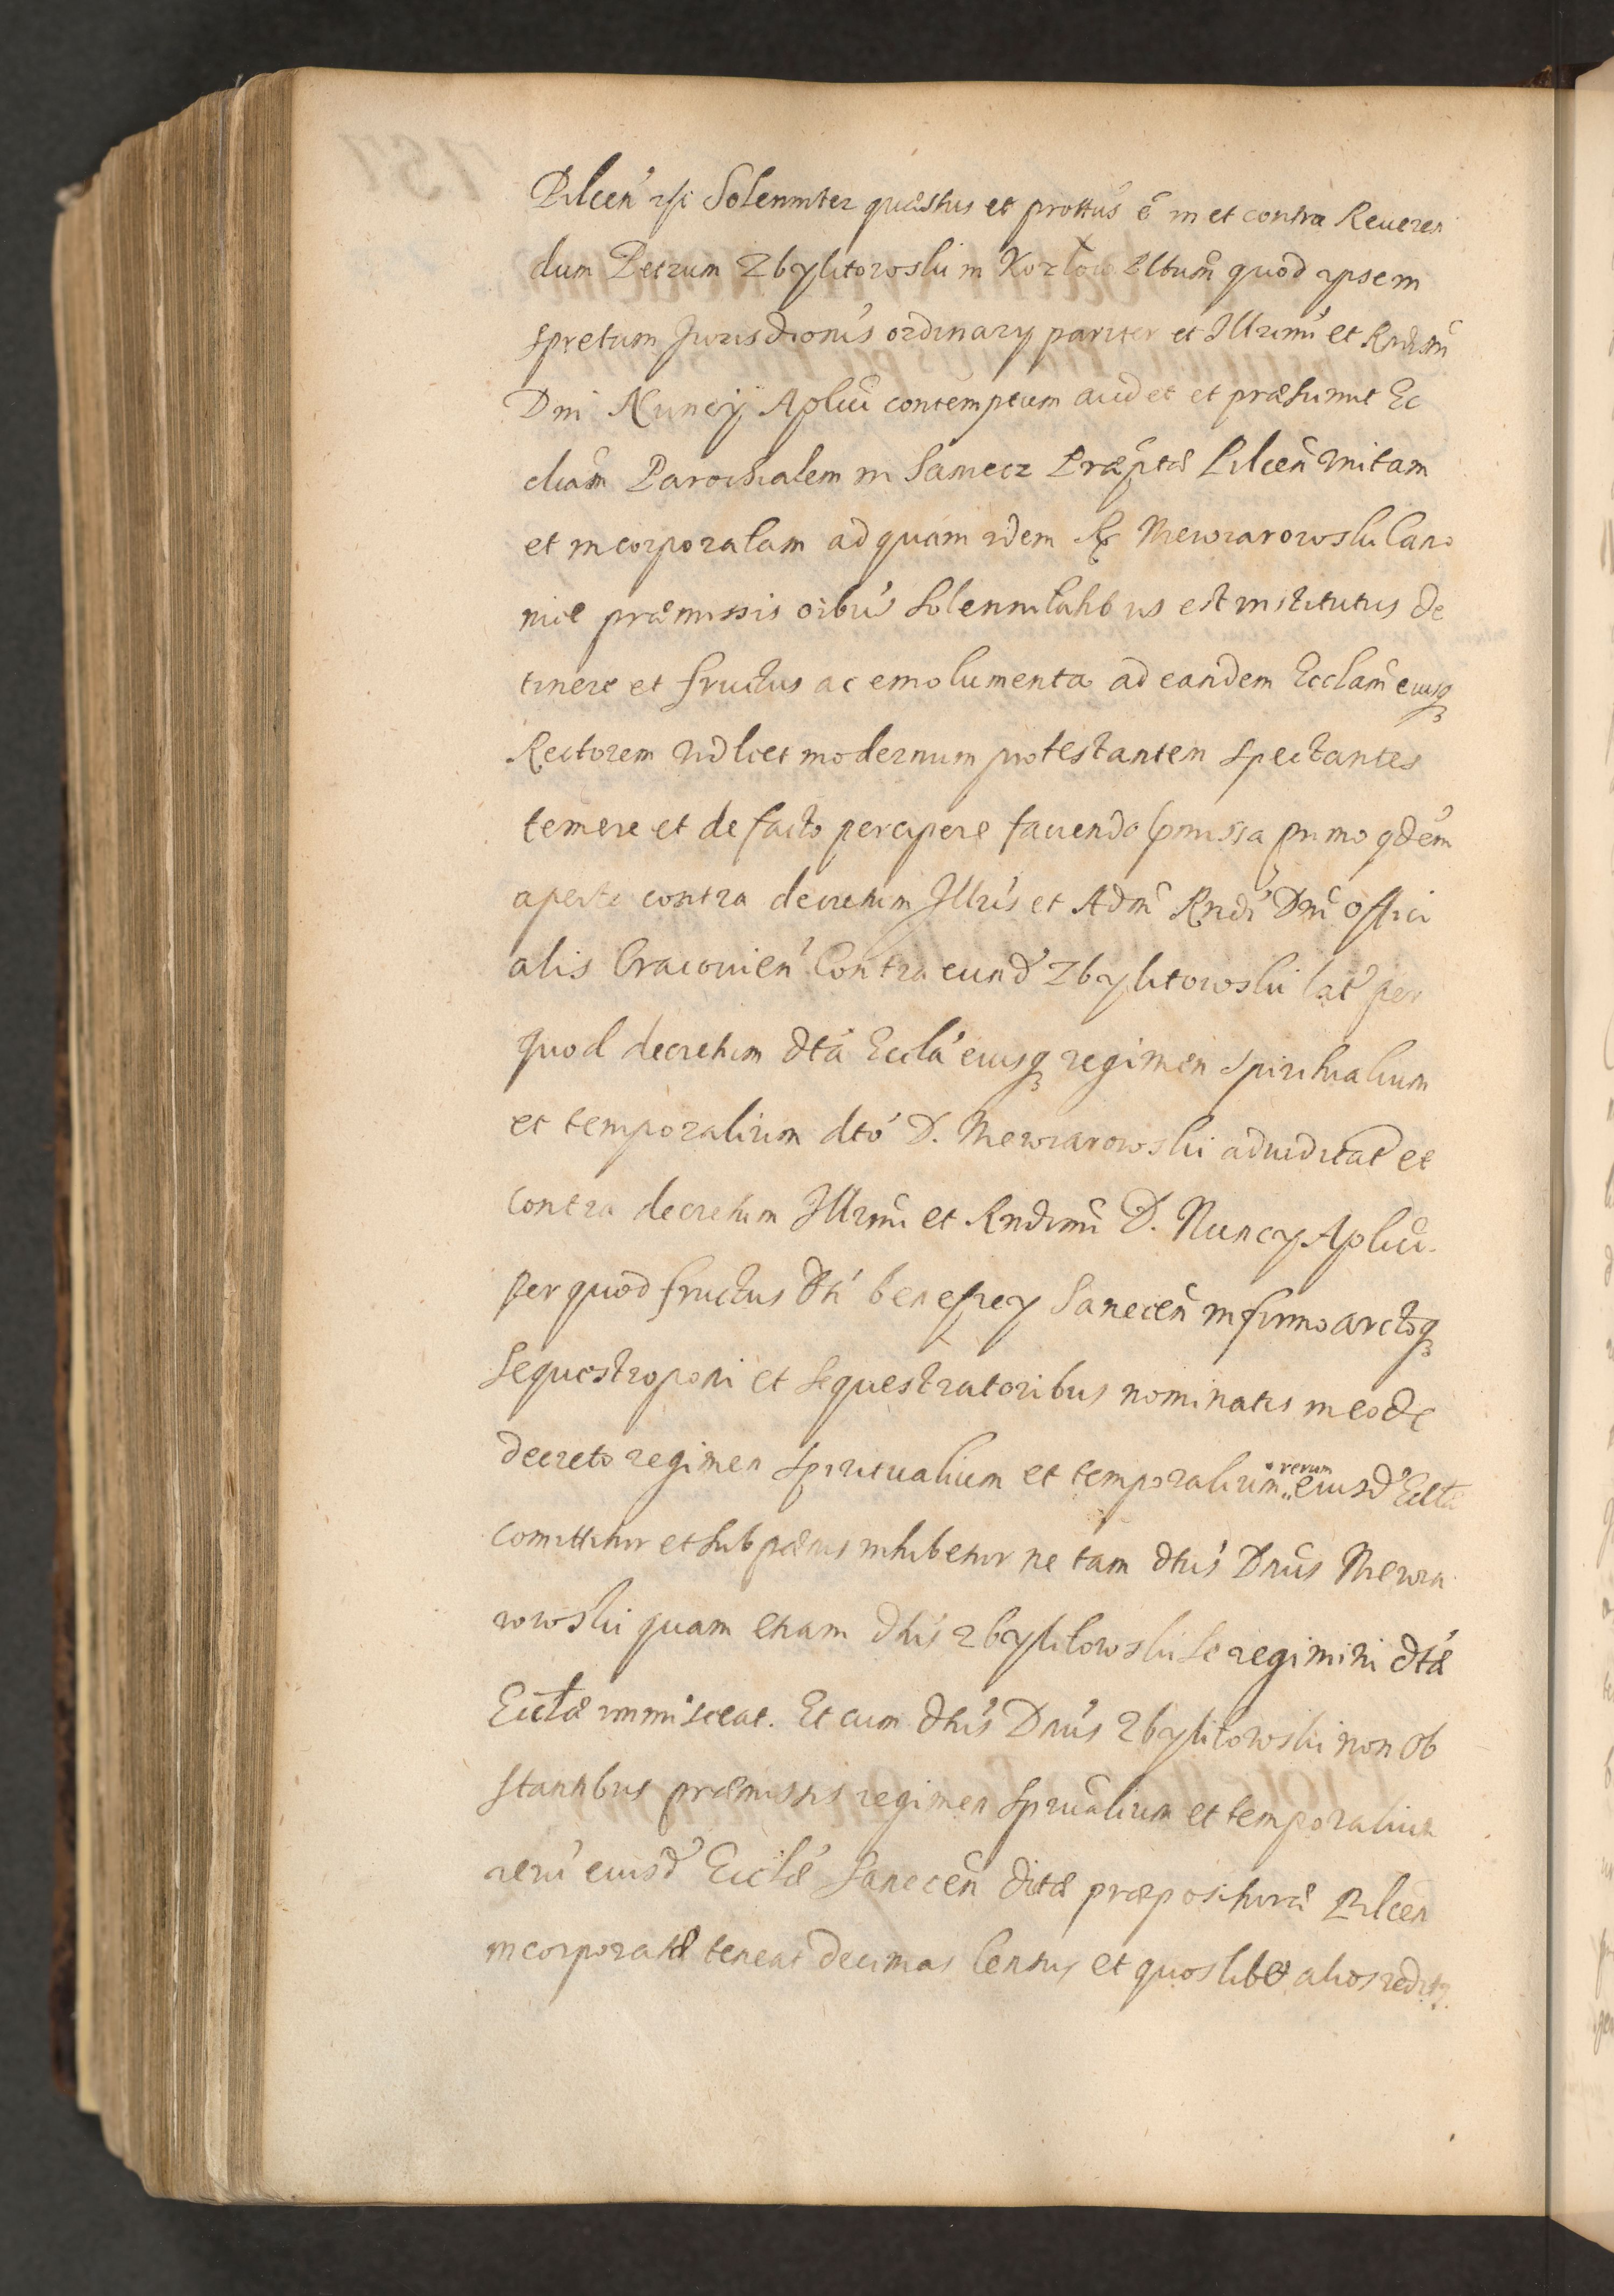 Pilcen̄ ipse Solenniter quæstus et prottus ē in et contra Reueren
dum Petrum Zbylitowski in Kozłow Altum quod ipsem
spretum Jurisdionis ordinary pariter et Illrimi et Rndismi
Dni Nuncij Aplici contemptum audet et præsumit Ec
cliam Parochialem in Sanecz Præptæ Pilcen̄ unitam
et incorporatam ad quam idem R Mewiarowski Cano
nice præmissis oibus Solennitatibus est institutus de
tinere et fructus ac emolumenta ad eandem Ecclam eiusq
Rectorem vidlicet modernum protestantem spectantes
temere et de facto percipere faciendo præmissa primo qdem
aperte contra decretum Illris et Adm Rndi Dni Offici
alis Cracouien̄ Contra eund Zbylitowski lat per
quod decretum dta Eccla eiusq regimen spiritualium
et temporalium dto D. Mewiarowski adiudicat et
contra decretum Illrimi et Rndimi D. Nuncy Aplici.
Per quod fructus dti beneficy Sanecen̄ in firmo arctoq
Sequestro poni et Sequestratoribus nominatis in eode
decreto regimen spiritualium et temporalium rerum eiusd Eccl
comittitur et sub pænis inhibetur ne tam dtus Dnus Mewia
rowski quam etiam dtus Zbylitowski se regimini dtæ
Ecclæ immisceat. Et cum dtus Dnus Zbylitowski non ob
stantibus præmissis regimen spirualium et temporalium
reru eiusd Ecclæ Sanecen̄ dictæ præposituræ Pilcen
incorporatæ teneat decimas Census et quoslibet alios redit9.